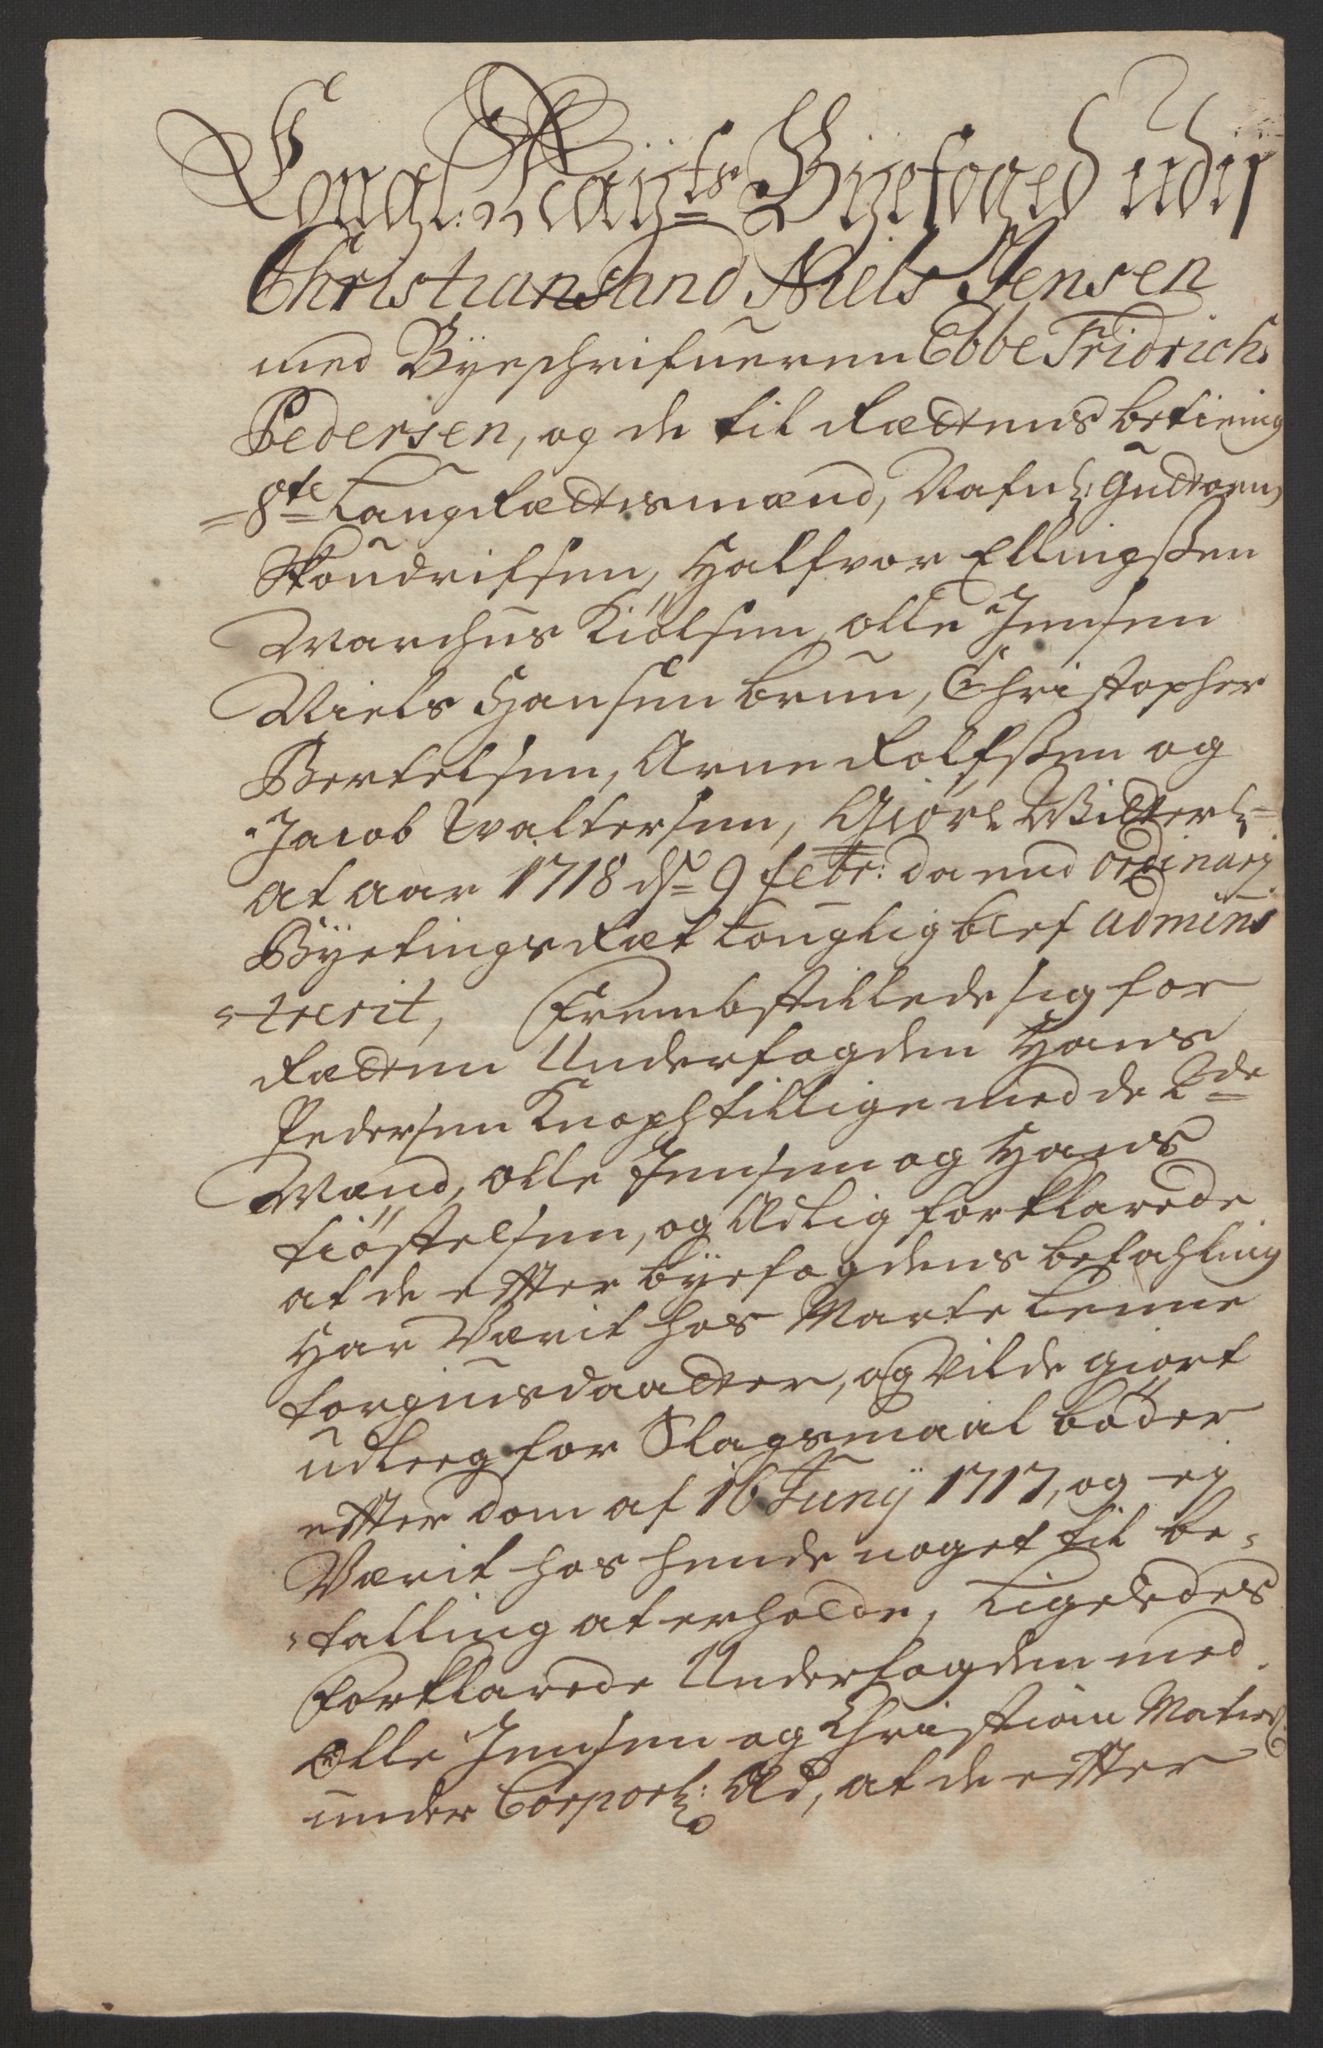 Kongl: Mayts Byefoged udi
Christiansand Niels Jensen
med Byeschrifueren Ebbe Fridrich
Pedersen, og de til Rættens betiening
8te Laugrættismænd, Nafnl: Guttorm
Skoudrifsen, Halfvor Ellingssen
Marchus Kiølsen, olle Jensen
Niels Hansen brun, Christopher
Bertelsen, Arne Rolfssen og
Jacob Waltersen, Giøre Witterl:
At aar 1718 ds 9 febr: da end ordinarj
Byetings Ræt louglig blef admini
strerit, Frembstillede sig for
Rætten Underfogden Hans
Pedersen Knoph tillige med de 2de
Mænd, olle Jensen og Hans
Kiøstelsen, og Ædlig forklarede
at de efter byefogdens befahling
Har Værit hos Marte Lenne
Torgiusdaatter, og Vilde giort
udleeg for Slagsmaal bøder
efter dom af 16 Junij 1717, og ej
Værit hos hende noget til be-
talling at erholde, Ligeledes
Forklarede Underfogden med
Olle Jensen og Christian Maties:
under Corporl: Æd, at de efter